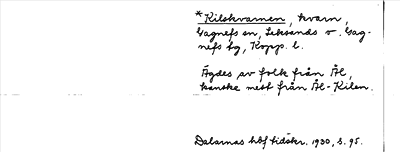 *Kilskvarnen, kvarn,
Gagnefs sn, Leksands o. Gag-
nefs tg, Kopp. l.
Ägdes av folk från Ål,
kanske mest från Ål-Kilen.
Dalarnas hbf tidskr. 1930, s. 95.